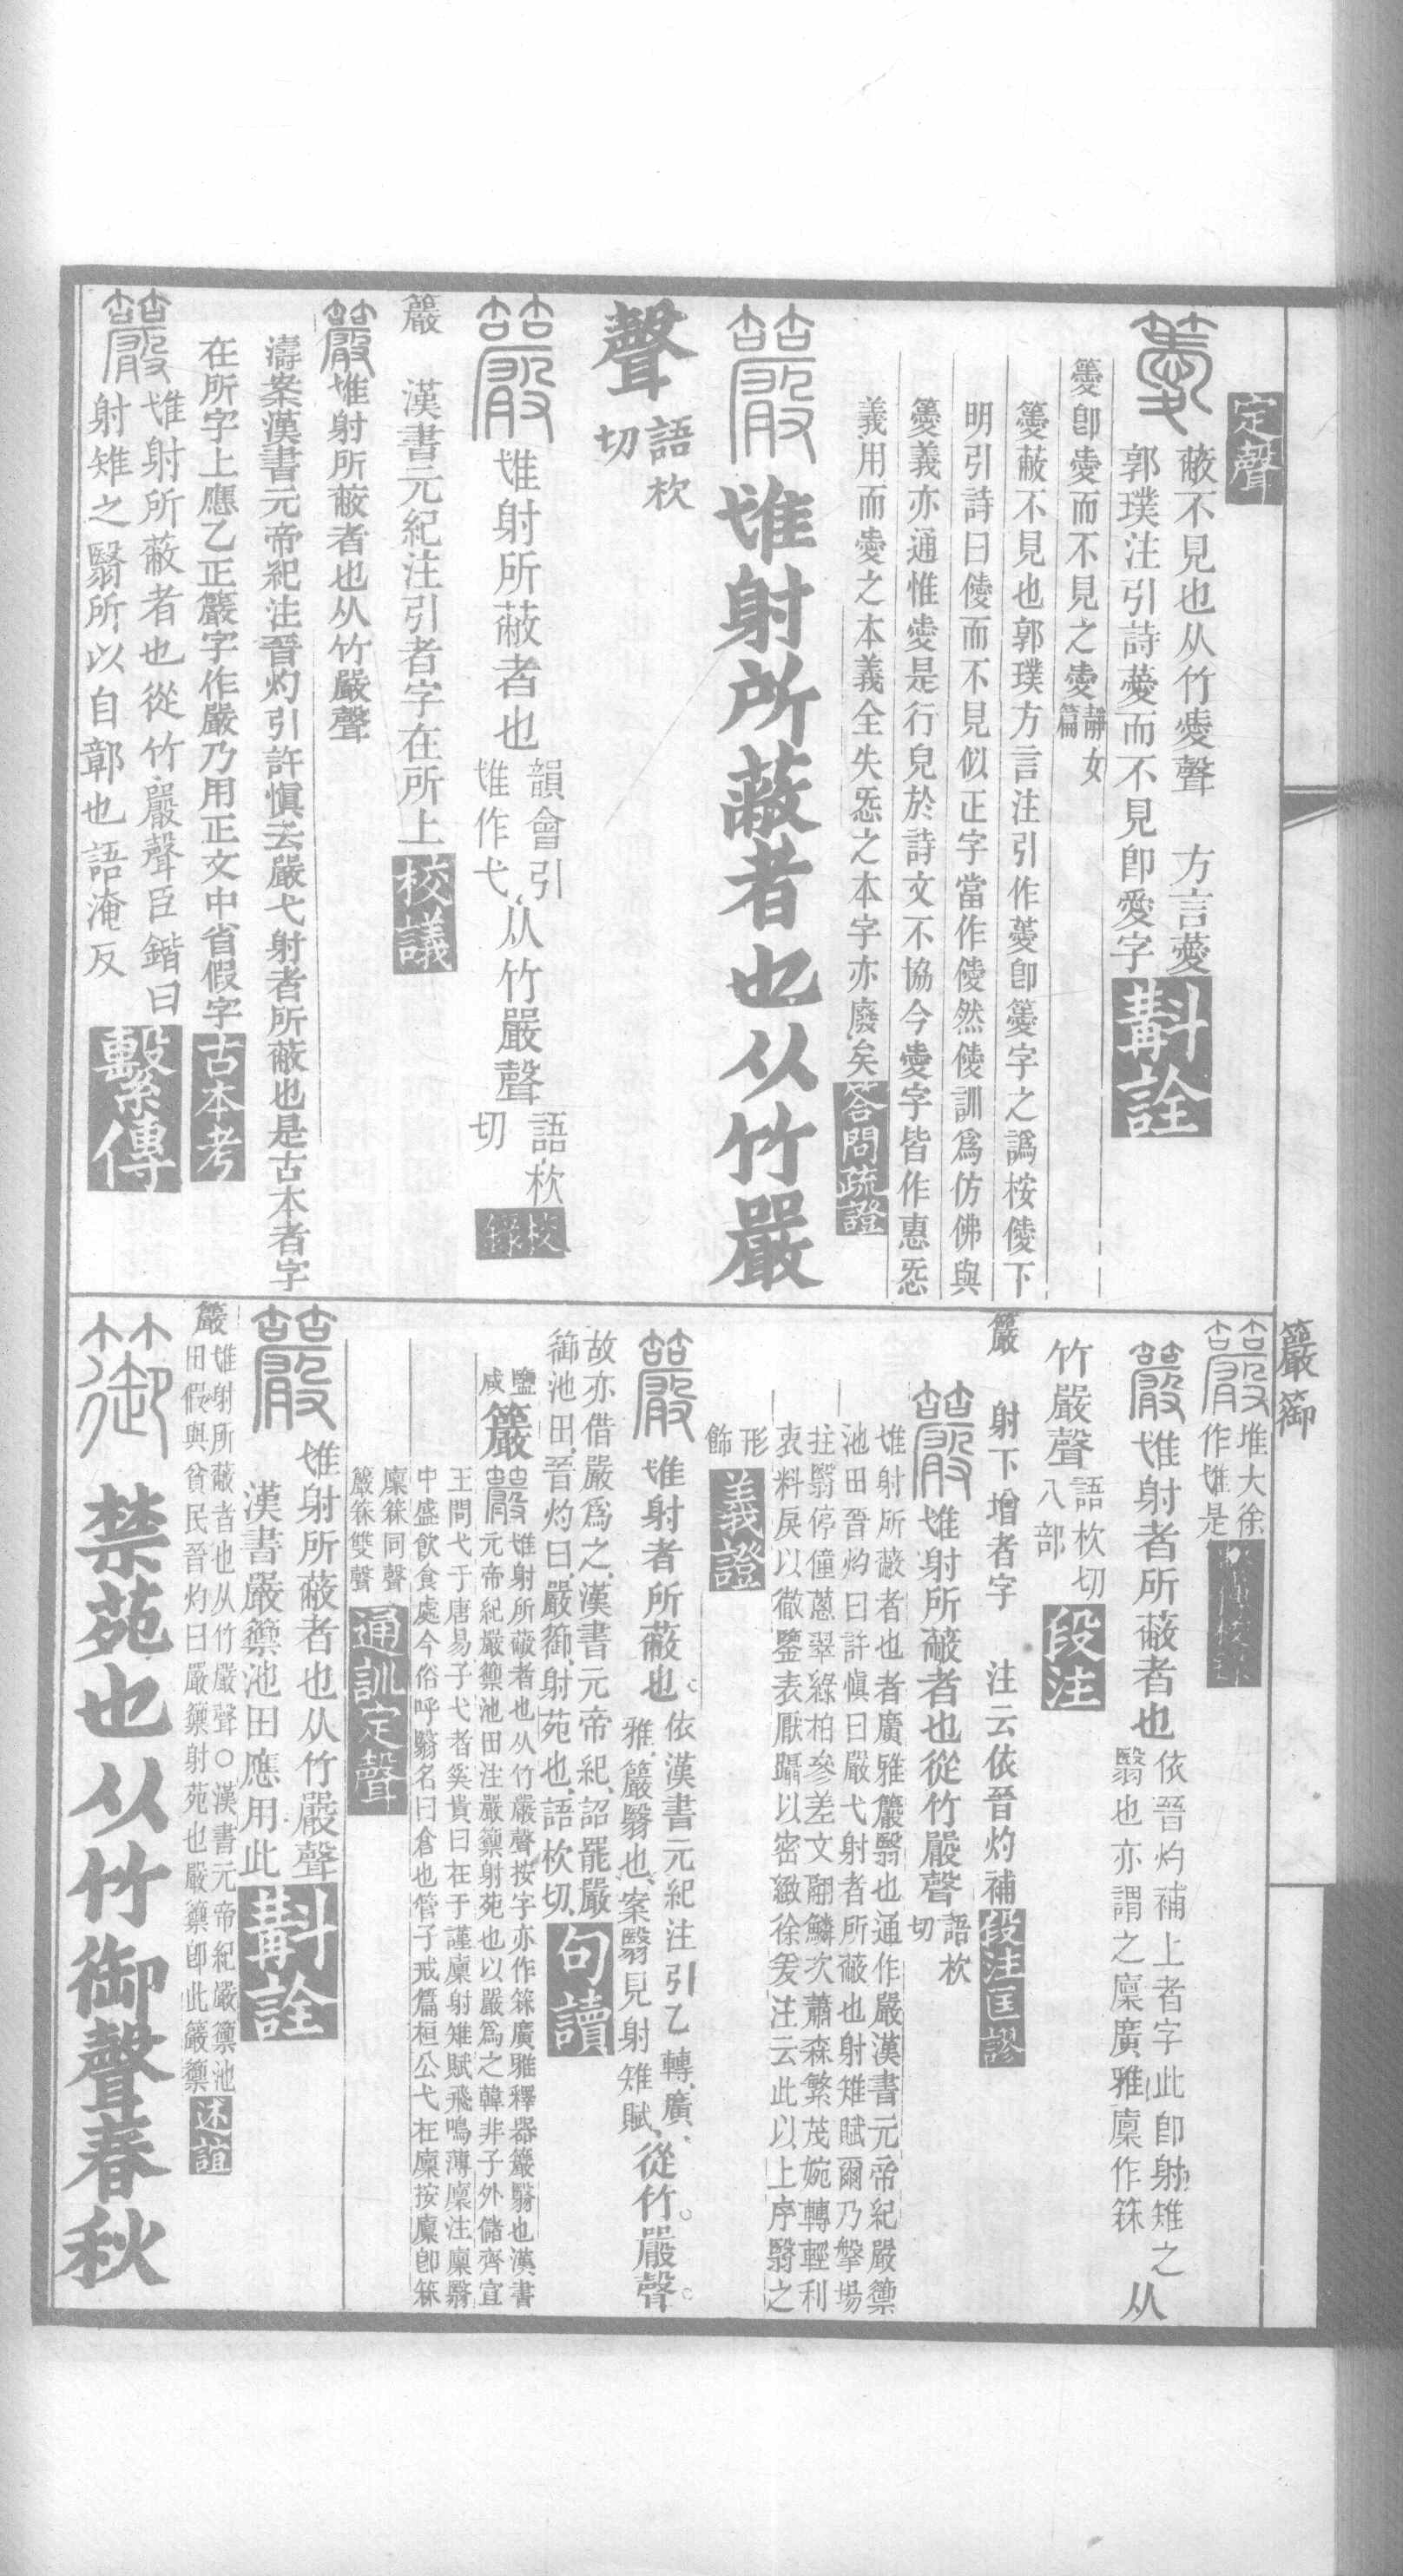 定聲
蔽不見也从竹愛聲　方言薆
郭璞注引詩薆而不見卽愛字
斠詮
籆卽愛而不見之愛靜女篇
薆蔽不見也郭璞方言注引作薆卽字之譌桉僾下
明引詩曰僾而不見似正字當作僾然僾訓爲仿佛與
義亦通惟愛是行皃於詩文不協今愛字皆作惠㤅
義用而愛之本義全失㤅之本字亦廢矣
答問疏證
惟射所蔽者也从竹嚴
聲語杴切
惟射所蔽者也韻會引惟作弋从竹嚴聲語杴切
校錄
籭　漢書元紀注引者字在所上
校議
惟射所蔽者也从竹嚴聲
濤案漢書元帝紀注晉灼引許愼云嚴弋射者所蔽也是古本者字
在所字上應乙正籭字作嚴乃用正文中省假字
古本考
惟射所蔽者也從竹嚴聲臣鍇曰
射雉之翳所以自鄣也語淹反
繫傳
籭籞
堆大徐
作惟是
惟射者所蔽者也依晉灼補上者字此卽射雉之
翳也亦謂之廩廣雅廩作䉮从
竹嚴聲語杴切八部
段注
射下增者字　注云依晉灼補
段注匡謬
惟射所蔽者也從竹嚴聲語杴切
惟射所蔽者也者廣雅籭翳也通作嚴漢書元帝紀嚴籞
池田晉灼曰許愼曰嚴弋射者所蔽也射雉賦爾乃摮場
拄翳停僮蔥翠綠柏參差文翮鱗次蕭森繁茂婉轉輕利
衷料戾以徹鑒表厭躡以密緻徐爰注云此以上序翳之
形飾
義證
惟射者所蔽也依漢書元紀注引乙轉廣
雅籭翳也案翳見射雉賦從竹嚴聲
故亦借嚴爲之漢書元帝紀詔罷嚴
籞池田晉灼曰嚴籞射苑也語杴切
句讀
鹽咸
惟射所蔽者也从竹嚴聲按字亦作䉮廣雅釋器籭翳也漢書
元帝紀嚴籞池田注嚴籞射苑也以嚴爲之韓非子外儲齊宣
王問弋于唐易子弋者奚貴曰在于謹廩射雉賦飛鳴薄廩注廩翳
中盛飲食處今俗呼翳名曰倉也管子戒篇桓公弋在廩按廩卽䉮
廩䉮同聲
籭䉮雙聲
通訓定聲
惟射所蔽者也从竹嚴聲
漢書嚴籞池田應用此
斠詮
惟射所蔽者也从竹嚴聲○漢書元帝紀嚴籞池
田假與貧民晉灼曰嚴籞射苑也嚴籞卽此籭籞
述誼
禁苑也从竹御聲春秋